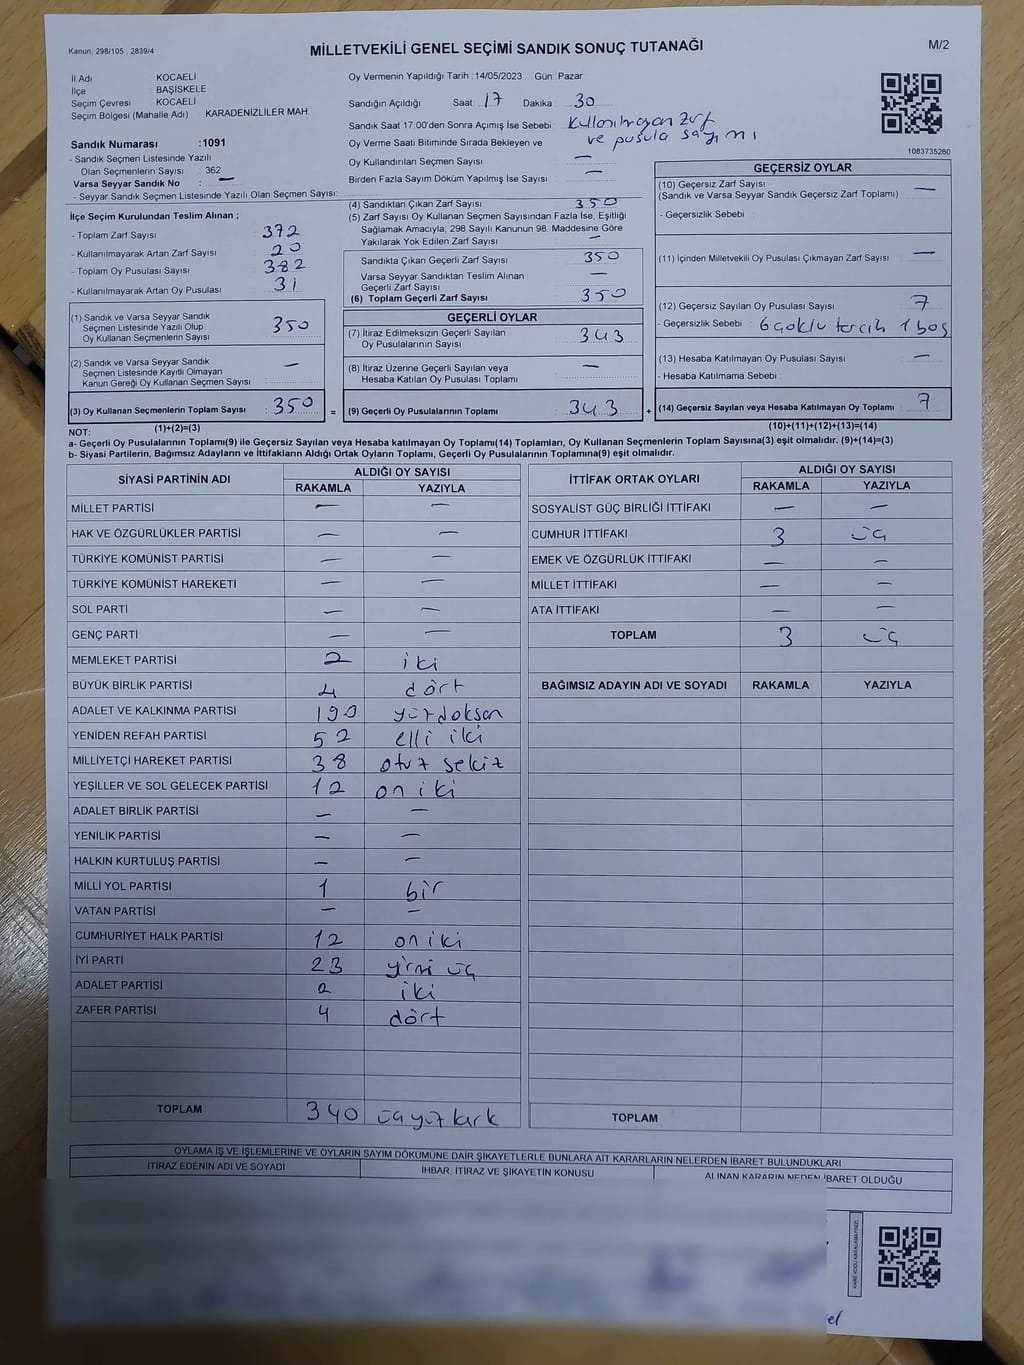 Kanun, 298/105 , 2839/4
MİLLETVEKİLİ GENEL SEÇİMİ SANDIK SONUÇ TUTANAĞI
M/2
İl Adı KOCAELİ
İlçe BAŞİSKELE
Seçim Çevresi KOCAELİ
Seçim Bölgesi (Mahalle Adı) KARADENİZLİLER MAH.
Sandık Numarası :1091
- Sandık Seçmen Listesinde Yazılı
Olan Seçmenlerin Sayısı : 362
Varsa Seyyar Sandık No : —
- Seyyar Sandık Seçmen Listesinde Yazılı Olan Seçmen Sayısı:
Oy Vermenin Yapıldığı Tarih :14/05/2023 Gün: Pazar
Sandığın Açıldığı Saat: 17 Dakika : 30
Sandık Saat 17:00'den Sonra Açımış İse Sebebi : kullanılmayan zarf
ve pusula sayımı
Oy Verme Saati Bitiminde Sırada Bekleyen ve
Oy Kullandırılan Seçmen Sayısı : —
Birden Fazla Sayım Döküm Yapılmış İse Sayısı : —
1083735260
İlçe Seçim Kurulundan Teslim Alınan ;
- Toplam Zarf Sayısı : 372
- Kullanılmayarak Artan Zarf Sayısı : 20
- Toplam Oy Pusulası Sayısı : 382
- Kullanılmayarak Artan Oy Pusulası : 31
(1) Sandık ve Varsa Seyyar Sandık
Seçmen Listesinde Yazılı Olup
Oy Kullanan Seçmenlerin Sayısı : 350
(2) Sandık ve Varsa Seyyar Sandık
Seçmen Listesinde Kayıtlı Olmayan
Kanun Gereği Oy Kullanan Seçmen Sayısı : —
(3) Oy Kullanan Seçmenlerin Toplam Sayısı : 350 =
(1)+(2)=(3)
(4) Sandıktan Çıkan Zarf Sayısı : 350
(5) Zarf Sayısı Oy Kullanan Seçmen Sayısından Fazla İse, Eşitliği
Sağlamak Amacıyla, 298 Sayılı Kanunun 98. Maddesine Göre
Yakılarak Yok Edilen Zarf Sayısı : —
Sandıkta Çıkan Geçerli Zarf Sayısı : 350
Varsa Seyyar Sandıktan Teslim Alınan
Geçerli Zarf Sayısı : —
(6) Toplam Geçerli Zarf Sayısı : 350
GEÇERLİ OYLAR
(7) İtiraz Edilmeksizin Geçerli Sayılan
Oy Pusulalarının Sayısı : 343
(8) İtiraz Üzerine Geçerli Sayılan veya
Hesaba Katılan Oy Pusulası Toplamı : —
(9) Geçerli Oy Pusulalarının Toplamı : 343 +
GEÇERSİZ OYLAR
(10) Geçersiz Zarf Sayısı
(Sandık ve Varsa Seyyar Sandık Geçersiz Zarf Toplamı) : —
- Geçersizlik Sebebi :
(11) İçinden Milletvekili Oy Pusulası Çıkmayan Zarf Sayısı : —
(12) Geçersiz Sayılan Oy Pusulası Sayısı : 7
- Geçersizlik Sebebi : 6 çoklu tercih 1 boş
(13) Hesaba Katılmayan Oy Pusulası Sayısı : —
- Hesaba Katılmama Sebebi :
(14) Geçersiz Sayılan veya Hesaba Katılmayan Oy Toplamı : 7
(10)+(11)+(12)+(13)=(14)
NOT:
a- Geçerli Oy Pusulalarının Toplamı(9) ile Geçersiz Sayılan veya Hesaba katılmayan Oy Toplamı(14) Toplamları, Oy Kullanan Seçmenlerin Toplam Sayısına(3) eşit olmalıdır. (9)+(14)=(3)
b- Siyasi Partilerin, Bağımsız Adayların ve İttifakların Aldığı Ortak Oyların Toplamı, Geçerli Oy Pusulalarının Toplamına(9) eşit olmalıdır.
SİYASİ PARTİNİN ADI ALDIĞI OY SAYISI
RAKAMLA YAZIYLA
MİLLET PARTİSİ — —
HAK VE ÖZGÜRLÜKLER PARTİSİ — —
TÜRKİYE KOMÜNİST PARTİSİ — —
TÜRKİYE KOMÜNİST HAREKETİ — —
SOL PARTİ — —
GENÇ PARTİ — —
MEMLEKET PARTİSİ 2 iki
BÜYÜK BİRLİK PARTİSİ 4 dört
ADALET VE KALKINMA PARTİSİ 190 yüzdoksan
YENİDEN REFAH PARTİSİ 52 elli iki
MİLLİYETÇİ HAREKET PARTİSİ 38 otuz sekiz
YEŞİLLER VE SOL GELECEK PARTİSİ 12 on iki
ADALET BİRLİK PARTİSİ — —
YENİLİK PARTİSİ — —
HALKIN KURTULUŞ PARTİSİ — —
MİLLİ YOL PARTİSİ 1 bir
VATAN PARTİSİ — —
CUMHURİYET HALK PARTİSİ 12 on iki
İYİ PARTİ 23 yirmi üç
ADALET PARTİSİ 2 iki
ZAFER PARTİSİ 4 dört
TOPLAM 340 üçyüz kırk
İTTİFAK ORTAK OYLARI ALDIĞI OY SAYISI
RAKAMLA YAZIYLA
SOSYALİST GÜÇ BİRLİĞİ İTTİFAKI — —
CUMHUR İTTİFAKI 3 üç
EMEK VE ÖZGÜRLÜK İTTİFAKI — —
MİLLET İTTİFAKI — —
ATA İTTİFAKI — —
TOPLAM 3 üç
BAĞIMSIZ ADAYIN ADI VE SOYADI RAKAMLA YAZIYLA
TOPLAM
OYLAMA İŞ VE İŞLEMLERİNE VE OYLARIN SAYIM DÖKÜMÜNE DAİR ŞİKAYETLERLE BUNLARA AİT KARARLARIN NELERDEN İBARET BULUNDUKLARI
İTİRAZ EDENİN ADI VE SOYADI İHBAR, İTİRAZ VE ŞİKAYETİN KONUSU ALINAN KARARIN NEDEN İBARET OLDUĞU
KARE KODU KARALAMAYINIZ!